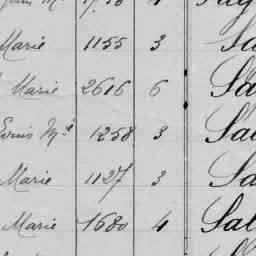 Marie 1155 3 Sa
Marie 2616 6 Sa
Louis Mie 1258 3 Sal
Marie 1127 3 Sa
Marie 1680 4 Sal